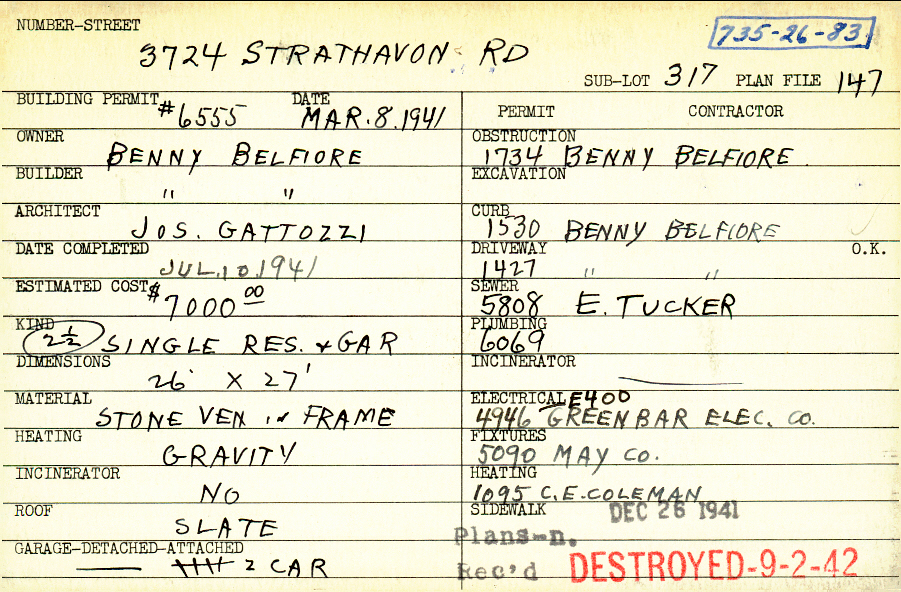 NUMBER-STREET
735-26-83
3724 STRATHAVON RD
SUB-LOT 317 PLAN FILE 147
BUILDING PERMIT #6555 DATE MAR. 8. 1941
PERMIT CONTRACTOR
OWNER BENNY BELFIORE
OBSTRUCTION 1734 BENNY BELFIORE
BUILDER " "
EXCAVATION
ARCHITECT JOS. GATTOZZI
CURB 1530 BENNY BELFIORE
DATE COMPLETED JUL. 10. 1941
DRIVEWAY 1427 " " O.K.
ESTIMATED COST $7000 00
SEWER 5808 E. TUCKER
KIND 2½ SINGLE RES. & GAR
PLUMBING 6069
DIMENSIONS 26' X 27'
INCINERATOR
MATERIAL STONE VEN FRAME
ELECTRICAL E400
4946 GREENBAR ELEC. CO.
HEATING GRAVITY
FIXTURES 5090 MAY CO.
INCINERATOR NO
HEATING 1095 C.E. COLEMAN
ROOF SLATE
SIDEWALK DEC 26 1941
Plans-n.
GARAGE-DETACHED-ATTACHED 2 CAR
Rec'd DESTROYED-9-2-42